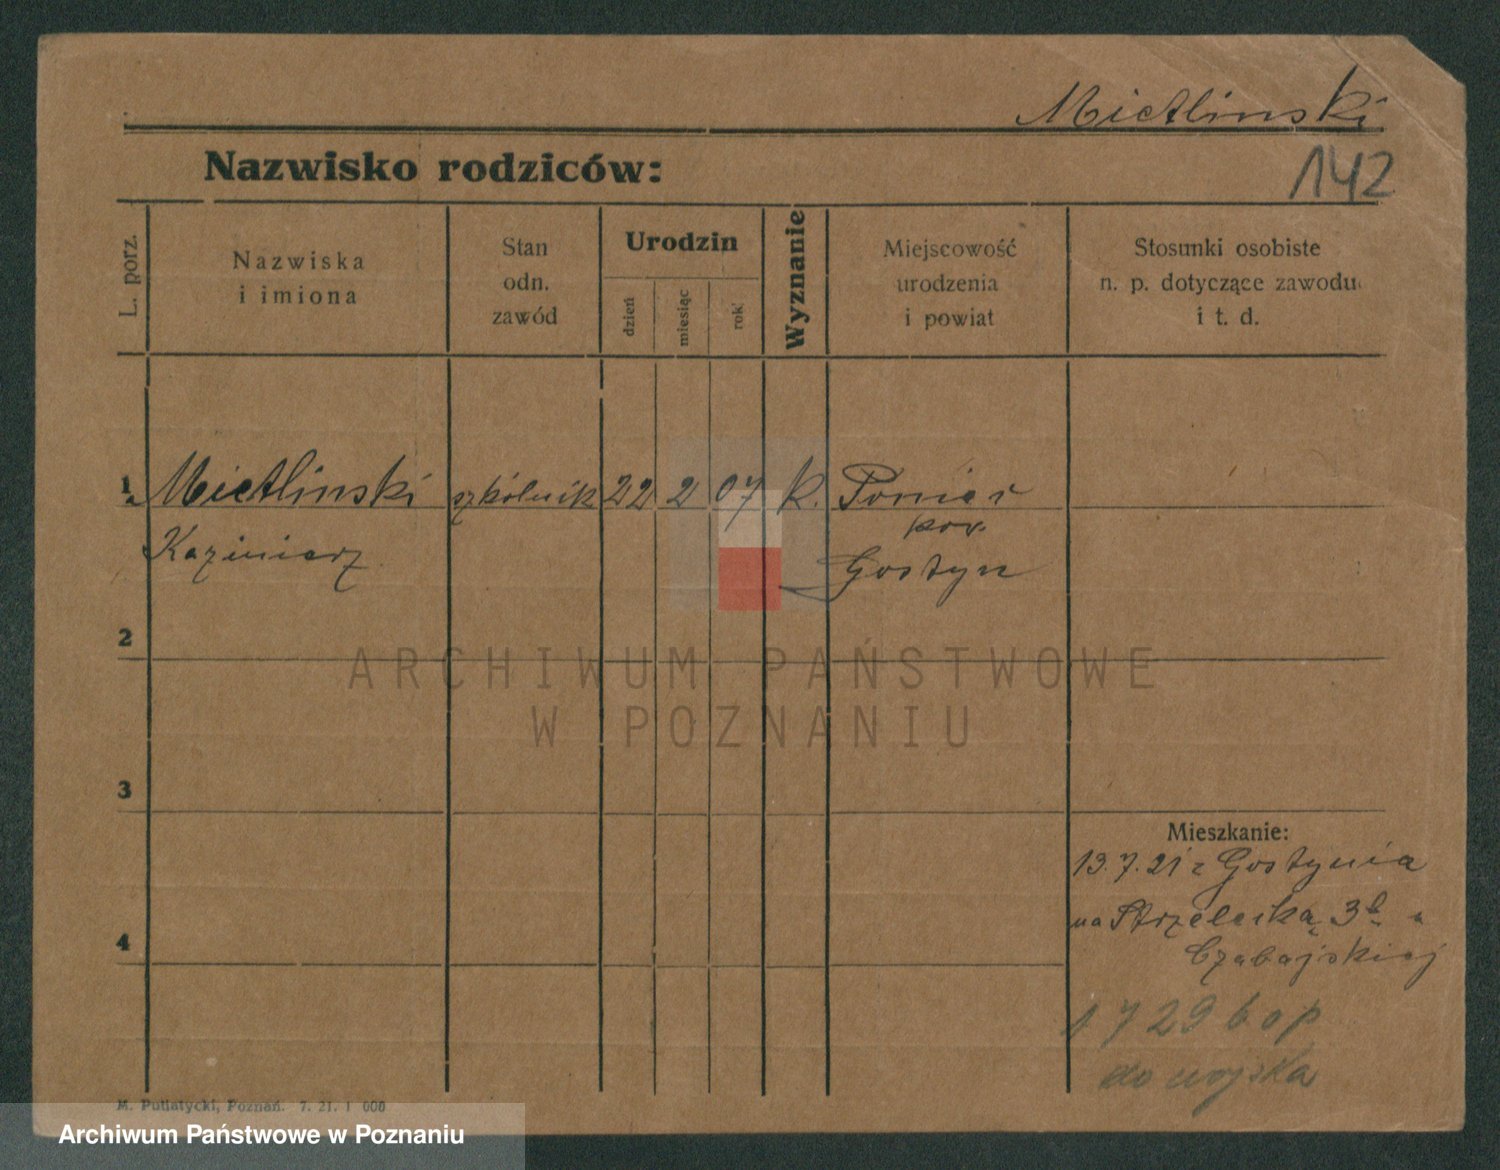 Mietlinski
Nazwisko rodziców:
142
L. porz.
Nazwiska
i imiona
Stan
odn.
zawód
Urodzin
dzień
miesiąc
rok
Wyznanie
Miejscowość
urodzenia
i powiat
Stosunki osobiste
n. p. dotyczące zawodu
i t. d.
1 Mietlinski szkólnik 22 2 07 k. Poniec
pow.
Kazimierz Gostyn
2
ARCHIWUM PAŃSTWOWE
W POZNANIU
3
Mieszkanie:
13.7.21 z Gostynia
4
na Strzelecką 3b u
Czabajskiej
1729 bop
do wojska
M. Putiatycki, Poznań. 7. 21. 1 000
Archiwum Państwowe w Poznaniu